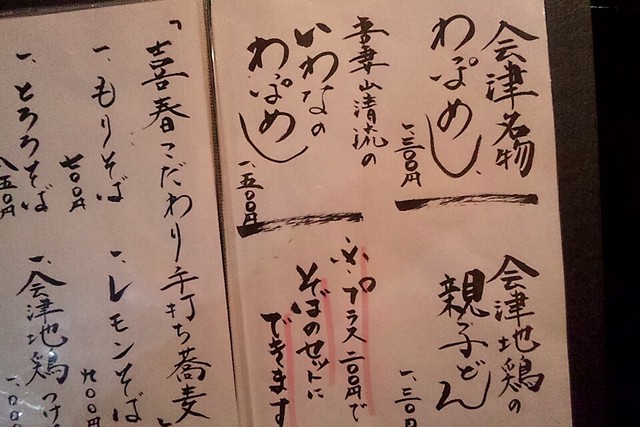 会津名物
わっぱめし
一、三〇〇円
吾妻山清流の
いわなの
わっぱめし
一、五〇〇円
会津地鶏の
親子どん
一、三〇円
プラス二〇〇円で
そばのセットに
できます
「喜春こだわり手打ち蕎麦」
一、もりそば
七〇〇円
一、レモンそば
九〇〇円
一、とろろそば
八五〇円
一、会津地鶏つけ
一、〇〇〇